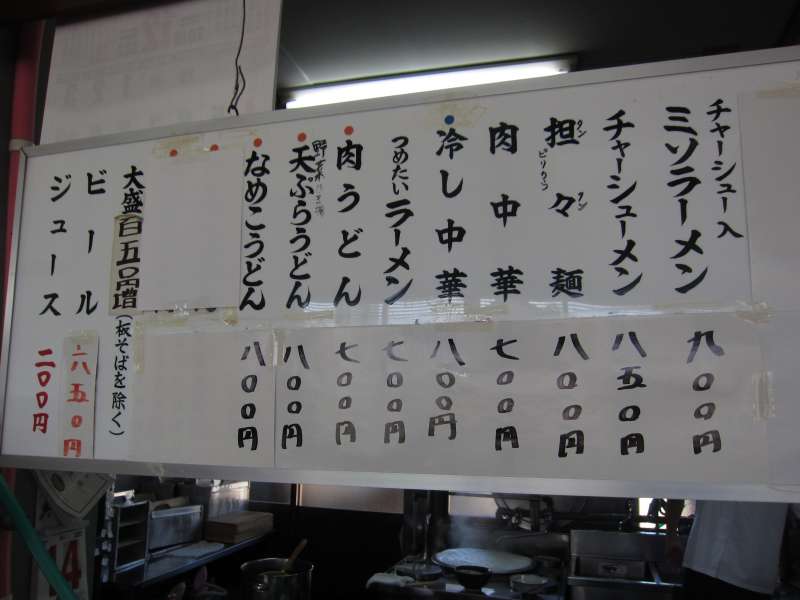 チャーシュー入
ミソラーメン
九〇〇円
チャーシューメン
八五〇円
担々麺
タン タン
ピリカラ
八〇〇円
肉中華
七〇〇円
冷し中華
八〇〇円
つめたい
ラーメン
七〇〇円
肉うどん
七〇〇円
天ぷらうどん
八〇〇円
なめこうどん
八〇〇円
大盛(百五〇円増)(板そばを除く)
ビール
六五〇円
ジュース
二〇〇円
14